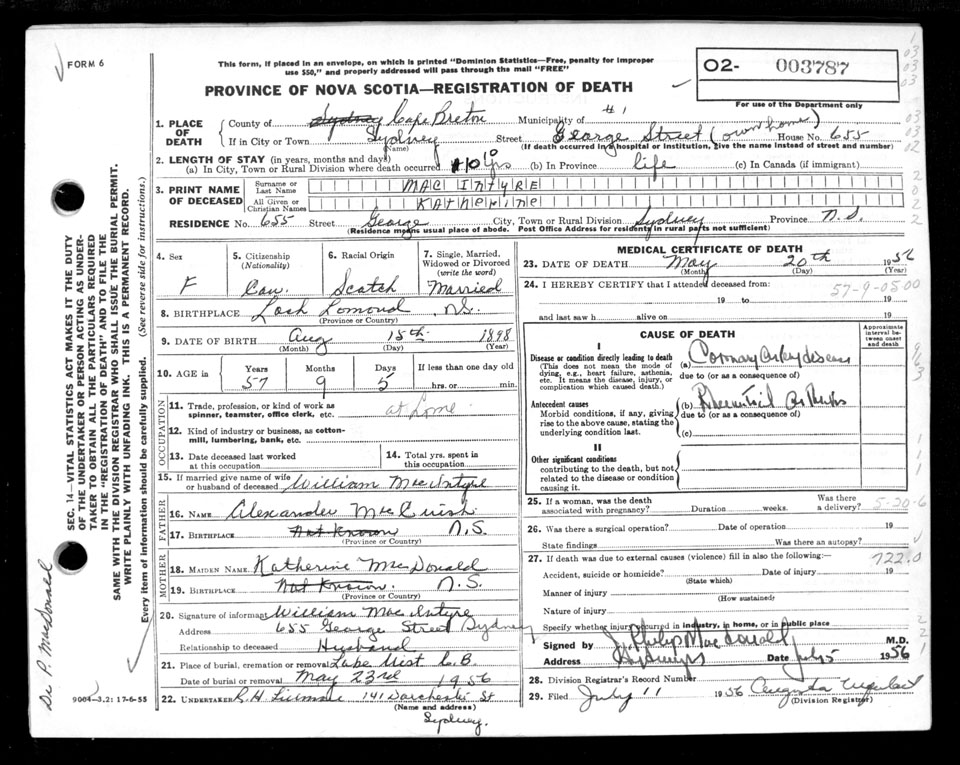 FORM 6
This form, if placed in an envelope, on which is printed "Dominion Statistics—Free, penalty for improper
use $50," and properly addressed will pass through the mail "FREE"
PROVINCE OF NOVA SCOTIA—REGISTRATION OF DEATH
O2- 003787
For use of the Department only
1. PLACE OF DEATH
County of Sydney Cape Breton Municipality of #1
If in City or Town Sydney Street George Street (own home) House No. 655
(Name) (If death occurred in a hospital or institution, give the name instead of street and number)
2. LENGTH OF STAY (in years, months and days)
(a) In City, Town or Rural Division where death occurred 10 yrs (b) In Province life (c) In Canada (if immigrant)
3. PRINT NAME OF DECEASED
Surname or Last Name MAC INTYRE
All Given or Christian Names KATHERINE
RESIDENCE No. 655 Street George City, Town or Rural Division Sydney Province N.S.
(Residence means usual place of abode. Post Office Address for residents in rural parts not sufficient)
4. Sex F
5. Citizenship (Nationality) Can.
6. Racial Origin Scotch
7. Single, Married, Widowed or Divorced (write the word) Married
8. BIRTHPLACE Loch Lomond N.S.
(Province or Country)
9. DATE OF BIRTH Aug 15th 1898
(Month) (Day) (Year)
10. AGE Years 57 Months 9 Days 5 If less than one day old hrs. or min.
OCCUPATION
11. Trade, profession, or kind of work as spinner, teamster, office clerk, etc. at home
12. Kind of industry or business, as cotton-mill, lumbering, bank, etc.
13. Date deceased last worked at this occupation
14. Total yrs. spent in this occupation
15. If married give name of wife or husband of deceased William MacIntyre
FATHER
16. NAME Alexander MacCuish
17. BIRTHPLACE Not Known N.S.
(Province or Country)
MOTHER
18. MAIDEN NAME Katherine MacDonald
19. BIRTHPLACE Not Known. N.S.
(Province or Country)
20. Signature of informant William MacIntyre
Address 655 George Street Sydney
Relationship to deceased Husband
21. Place of burial, cremation or removal Lake Uist C.B.
Date of burial or removal May 23rd 1956
22. UNDERTAKER 141 Dorchester St
(Name and address)
Sydney.
MEDICAL CERTIFICATE OF DEATH
23. DATE OF DEATH May 20th 1956
(Month) (Day) (Year)
24. I HEREBY CERTIFY that I attended deceased from:
57-9-05.00
19 to 19
and last saw h alive on 19
CAUSE OF DEATH
Approximate interval between onset and death
I
Disease or condition directly leading to death
(This does not mean the mode of dying, e.g., heart failure, asthenia, etc. It means the disease, injury, or complication which caused death.)
(a) Coronary Artery disease
due to (or as a consequence of)
Antecedent causes
Morbid conditions, if any, giving rise to the above cause, stating the underlying condition last.
(b) Rheumatoid Arthritis
due to (or as a consequence of)
(c)
II
Other significant conditions
contributing to the death, but not related to the disease or condition causing it.
25. If a woman, was the death associated with pregnancy? Duration weeks. Was there a delivery? 5-20-6
26. Was there a surgical operation? Date of operation 19
State findings Was there an autopsy?
27. If death was due to external causes (violence) fill in also the following:— 722.0
Accident, suicide or homicide? Date of injury 19
(State which)
Manner of injury
(How sustained)
Nature of injury
Specify whether injury occurred in industry, in home, or in public place
Signed by J. Philip MacDonald M.D.
Address Date July 5 1956
28. Division Registrar's Record Number
29. Filed July 11 1956 Augusta
(Division Registrar)
SEC. 14—VITAL STATISTICS ACT MAKES IT THE DUTY
OF THE UNDERTAKER OR PERSON ACTING AS UNDER-
TAKER TO OBTAIN ALL THE PARTICULARS REQUIRED
IN THE "REGISTRATION OF DEATH" AND TO FILE THE
SAME WITH THE DIVISION REGISTRAR WHO SHALL ISSUE THE BURIAL PERMIT.
WRITE PLAINLY WITH UNFADING INK. THIS IS A PERMANENT RECORD.
Every item of information should be carefully supplied. (See reverse side for instructions.)
Dr P. MacDonald
9004—3.21: 17-6-55